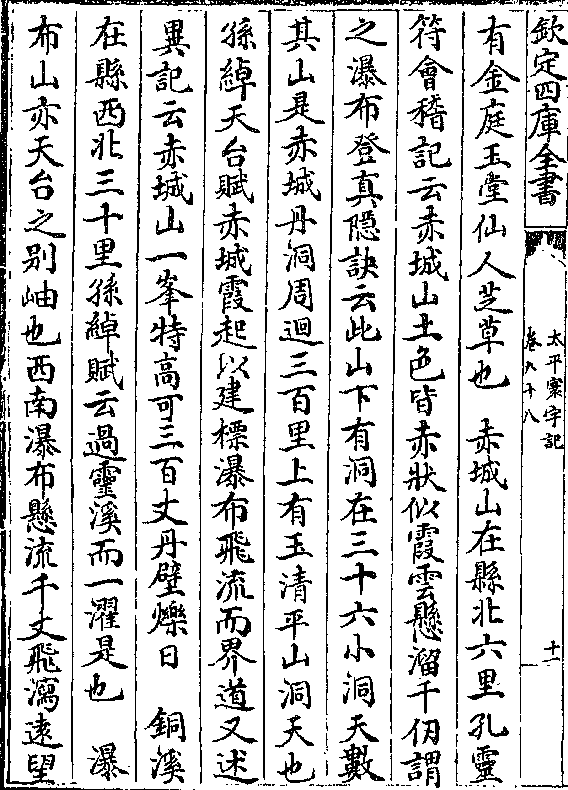 欽定四庫全書
太平寰宇記
卷九十八
十一
有金庭玉堂仙人芝草也　赤城山在縣北六里孔靈
符會稽記云赤城山土色皆赤狀似霞雲懸溜千仞謂
之瀑布登真隱訣云此山下有洞在三十六小洞天數
其山是赤城丹洞周迴三百里上有玉清平山洞天也
孫綽天台賦赤城霞起以建標瀑布飛流而界道又述
異記云赤城山一峯特高可三百丈丹壁爍日　銅溪
在縣西北三十里孫綽賦云過靈溪而一濯是也　瀑
布山亦天台之别岫也西南瀑布懸流千丈飛瀉遠望